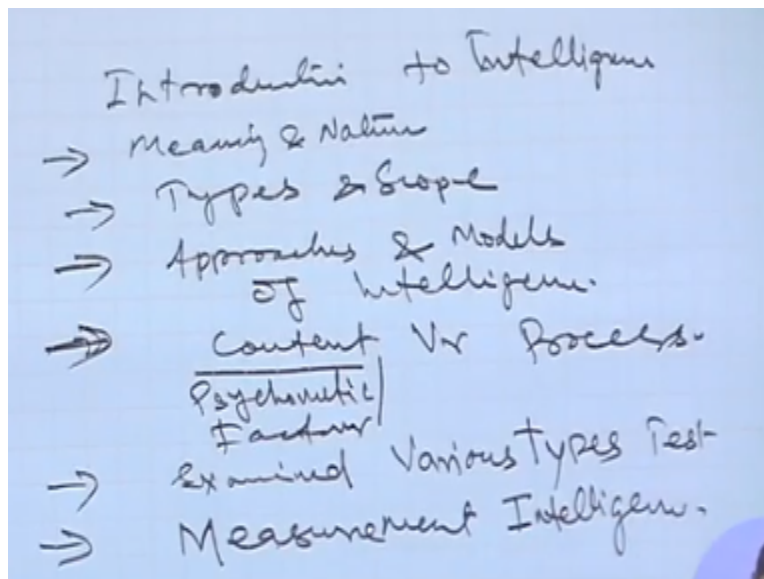 Introduction to Intelligence
→ Meaning & Nature
→ Types & Scope
→ Approaches & Models
of Intelligence.
→ Content Vs Process.
Psychometric/
Factors
→ Examined Various Types Test
→ Measurement Intelligence.